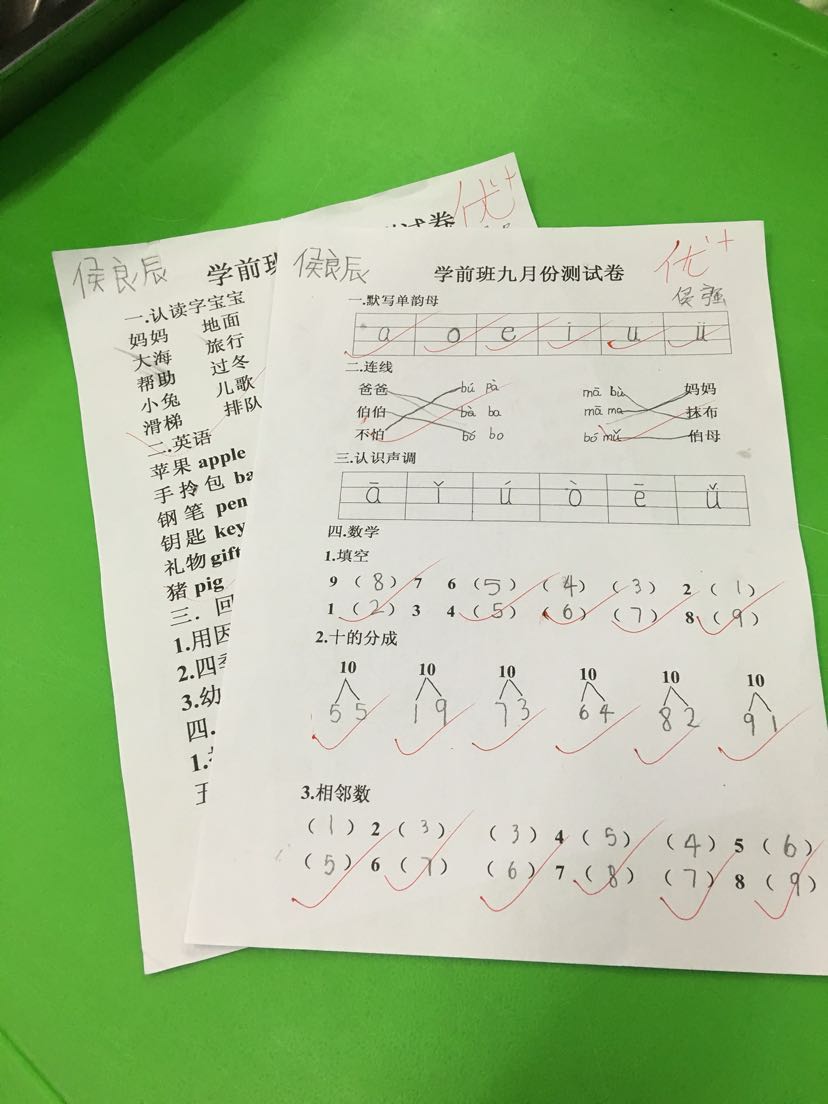 侯良辰
学前班
试卷
优+
一.认读字宝宝
妈妈 地面
大海 旅行
帮助 过冬
小兔 儿歌
滑梯 排队
二.英语
苹果 apple
手拎包 ba
钢笔 pen
钥匙 key
礼物 gift
猪 pig
三.回
1.用因
2.四季
3.幼
四.
1.
侯良辰
学前班九月份测试卷
优+
侯强
一.默写单韵母
a o e i u ü
二.连线
爸爸 bú pà mā bù 妈妈
伯伯 bà ba mā ma 抹布
不怕 bó bo bó mǔ 伯母
三.认识声调
ā ǐ ú ò ē ǚ
四.数学
1.填空
9 ( 8 ) 7 6 ( 5 ) ( 4 ) ( 3 ) 2 ( 1 )
1 ( 2 ) 3 4 ( 5 ) ( 6 ) ( 7 ) 8 ( 9 )
2.十的分成
10 10 10 10 10 10
5 5 1 9 7 3 6 4 8 2 9 1
3.相邻数
( 1 ) 2 ( 3 ) ( 3 ) 4 ( 5 ) ( 4 ) 5 ( 6 )
( 5 ) 6 ( 7 ) ( 6 ) 7 ( 8 ) ( 7 ) 8 ( 9 )